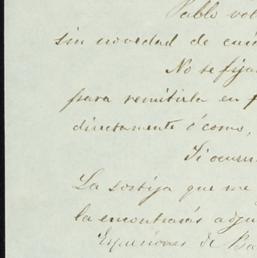 Pablo vol
sin novedad de cuid
No se fijar
para remitirla en p
directamente ó como,
Si ocurri
La sortija que me
la encontrarás adju
Espresiones de Ba